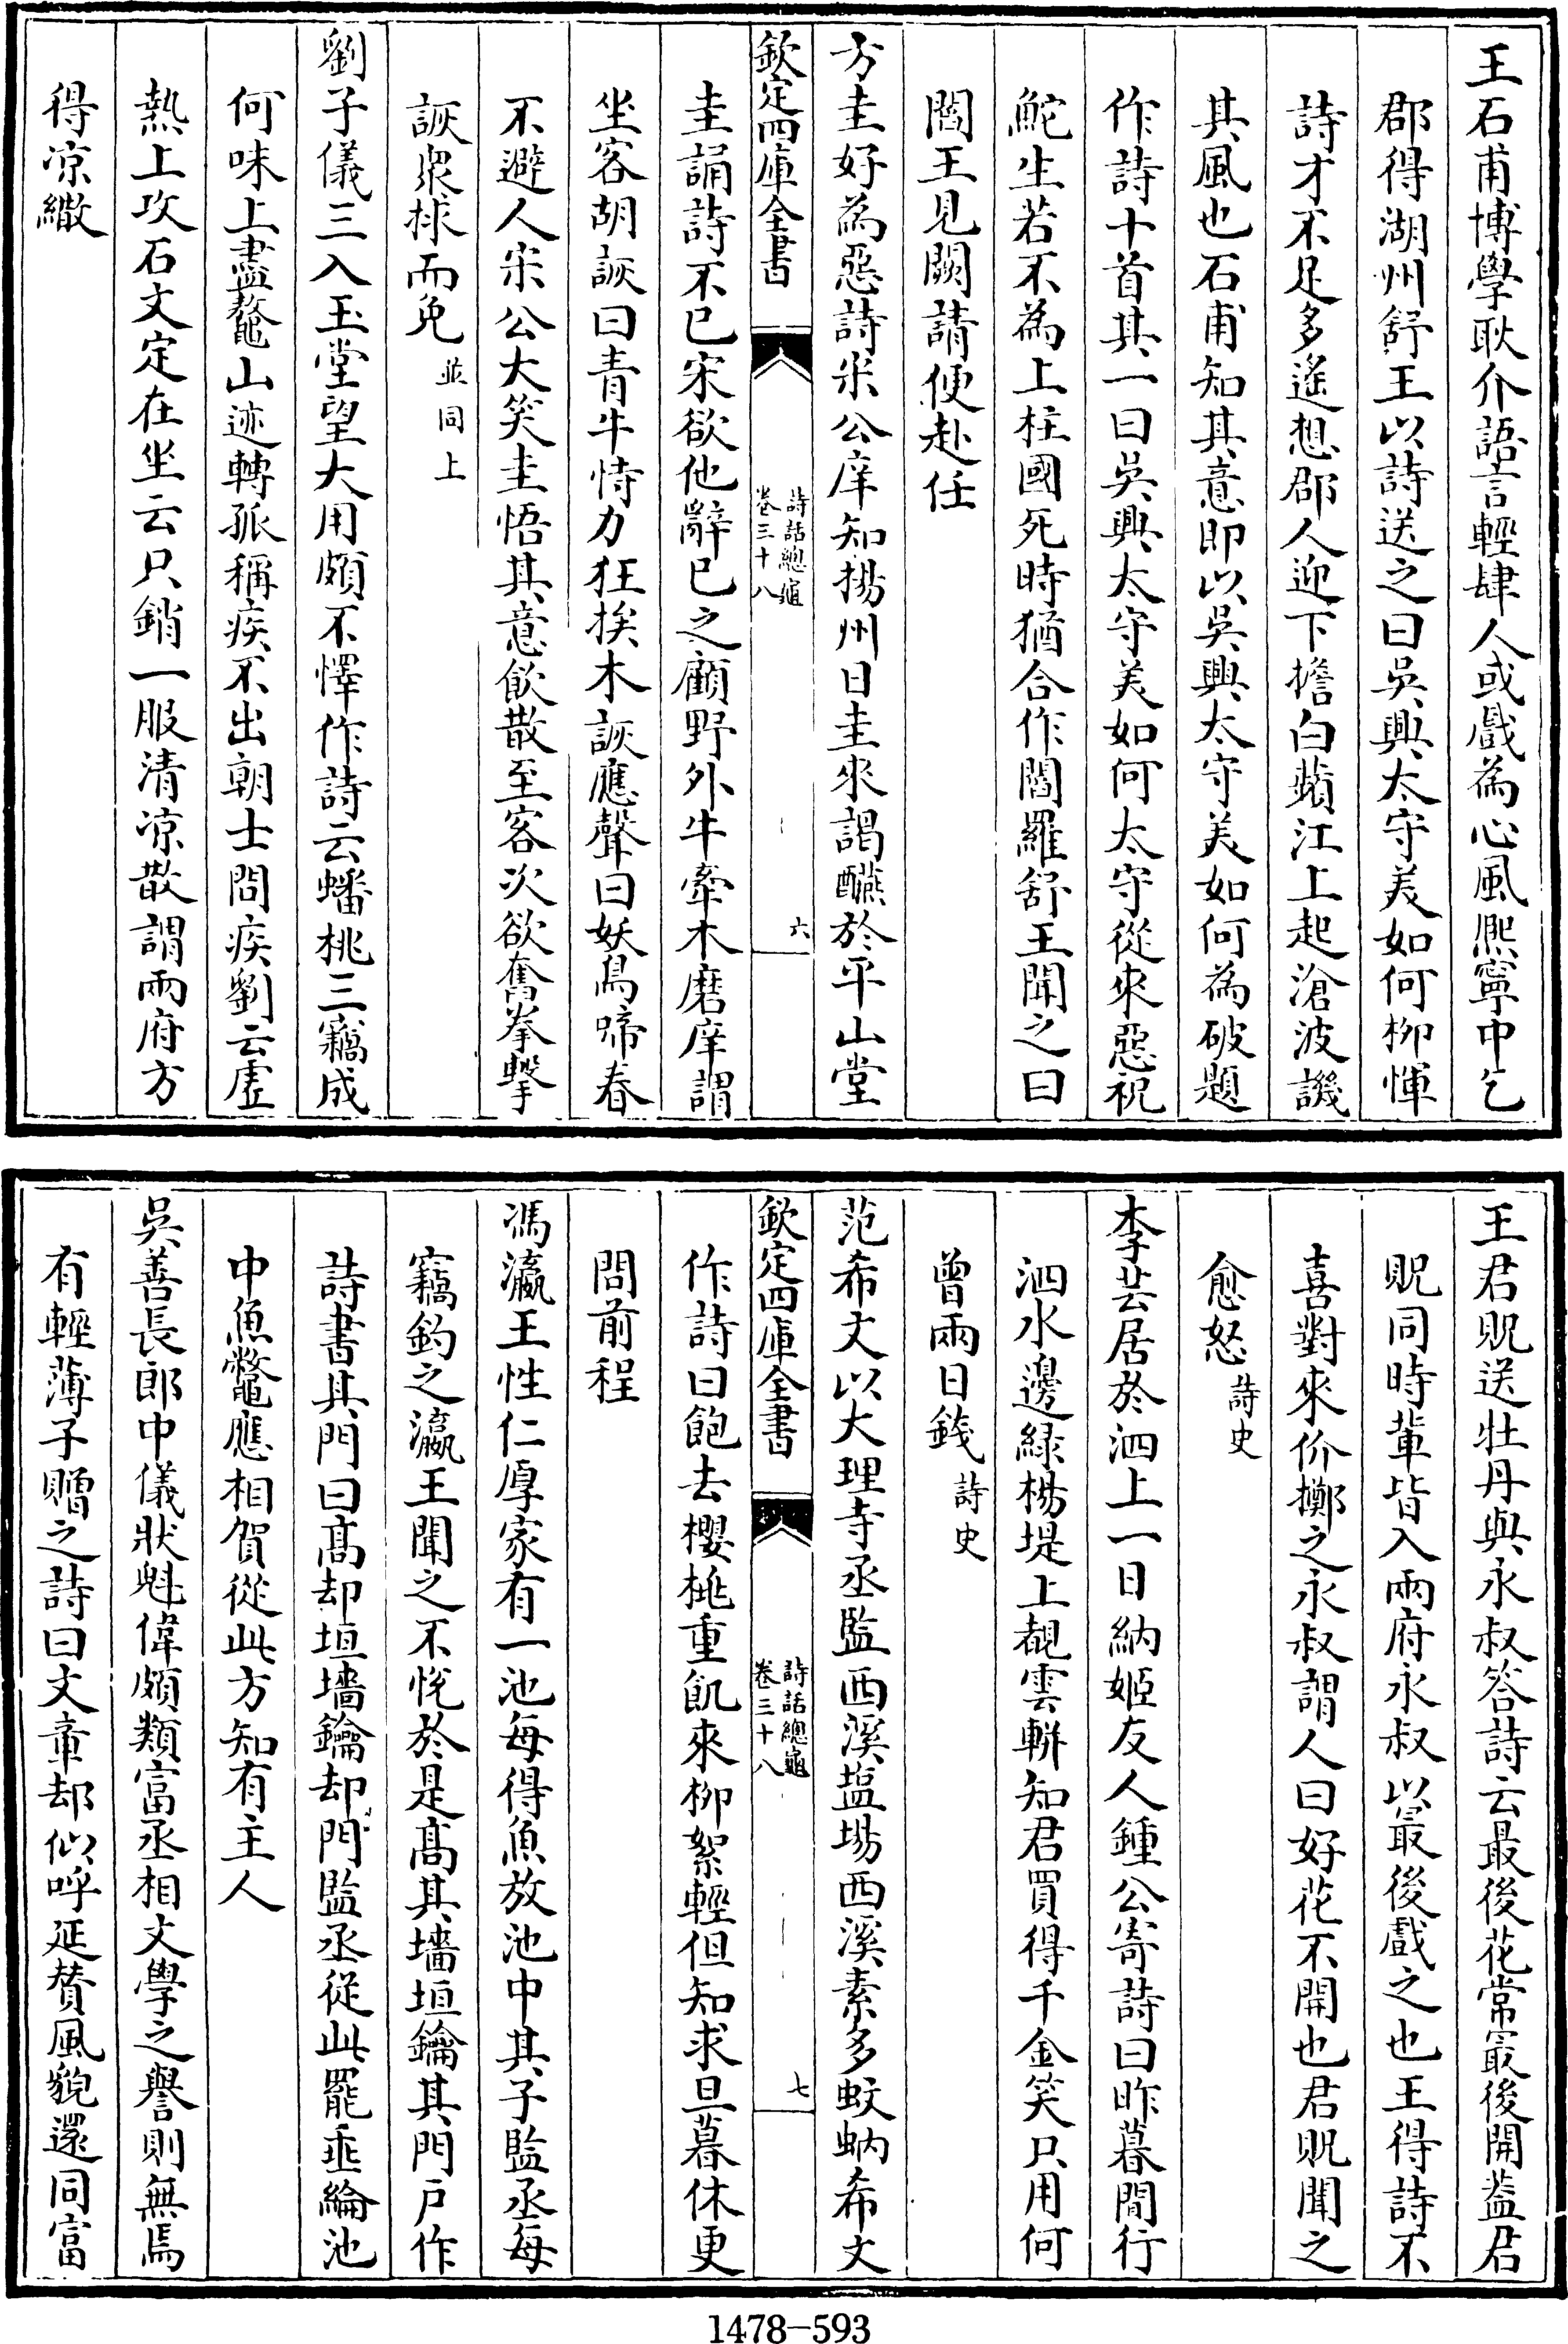 王石甫博學耿介語言輕肆人或戲為心風熈寧中乞
郡得湖州舒王以詩送之曰吳興太守美如何栁惲
詩才不足多遙想郡人迎下擔白蘋江上起滄波譏
其風也石甫知其意即以吳興太守美如何為破題
作詩十首其一曰吳興太守美如何太守從來惡祝
鮀生若不為上柱國死時猶合作閻羅舒王聞之曰
閻王見闕請便赴任
方圭好為惡詩宋公庠知揚州日圭來謁醼於平山堂
欽定四庫全書
詩話總龜
卷三十八
六
圭誦詩不已宋欲他辭已之顧野外牛牽木磨庠謂
坐客胡恢曰青牛恃力狂挨木恢應聲曰妖鳥啼春
不避人宋公大笑圭悟其意飲散至客次欲奮拳擊
恢衆捄而免並同上
劉子儀三入玉堂望大用頗不懌作詩云蟠桃三竊成
何味上盡鼇山迹轉孤稱疾不出朝士問疾劉云虚
熱上攻石文定在坐云只銷一服清凉散謂兩府方
得凉繖
王君貺送牡丹與永叔答詩云最後花常最後開葢君
貺同時輩皆入兩府永叔以最後戲之也王得詩不
喜對來价擲之永叔謂人曰好花不開也君貺聞之
愈怒詩史
李芸居於泗上一日納姬友人鍾公寄詩曰昨暮閒行
泗水邊緑楊堤上覩雲軿知君買得千金笑只用何
曾兩日錢詩史
范希文以大理寺丞監西溪塩場西溪素多蚊蚋希文
欽定四庫全書
詩話總龜
卷三十八
七
作詩曰飽去櫻桃重飢來栁絮輕但知求旦暮休更
問前程
馮瀛王性仁厚家有一池每得魚放池中其子監丞每
竊釣之瀛王聞之不恱於是髙其墻垣鑰其門户作
詩書其門曰髙却垣墻鑰却門監丞從此罷垂綸池
中魚鼈應相賀從此方知有主人
吳善長郎中儀狀魁偉頗類富丞相文學之譽則無焉
有輕薄子贈之詩曰文章却似呼延賛風貌還同富
1478-593